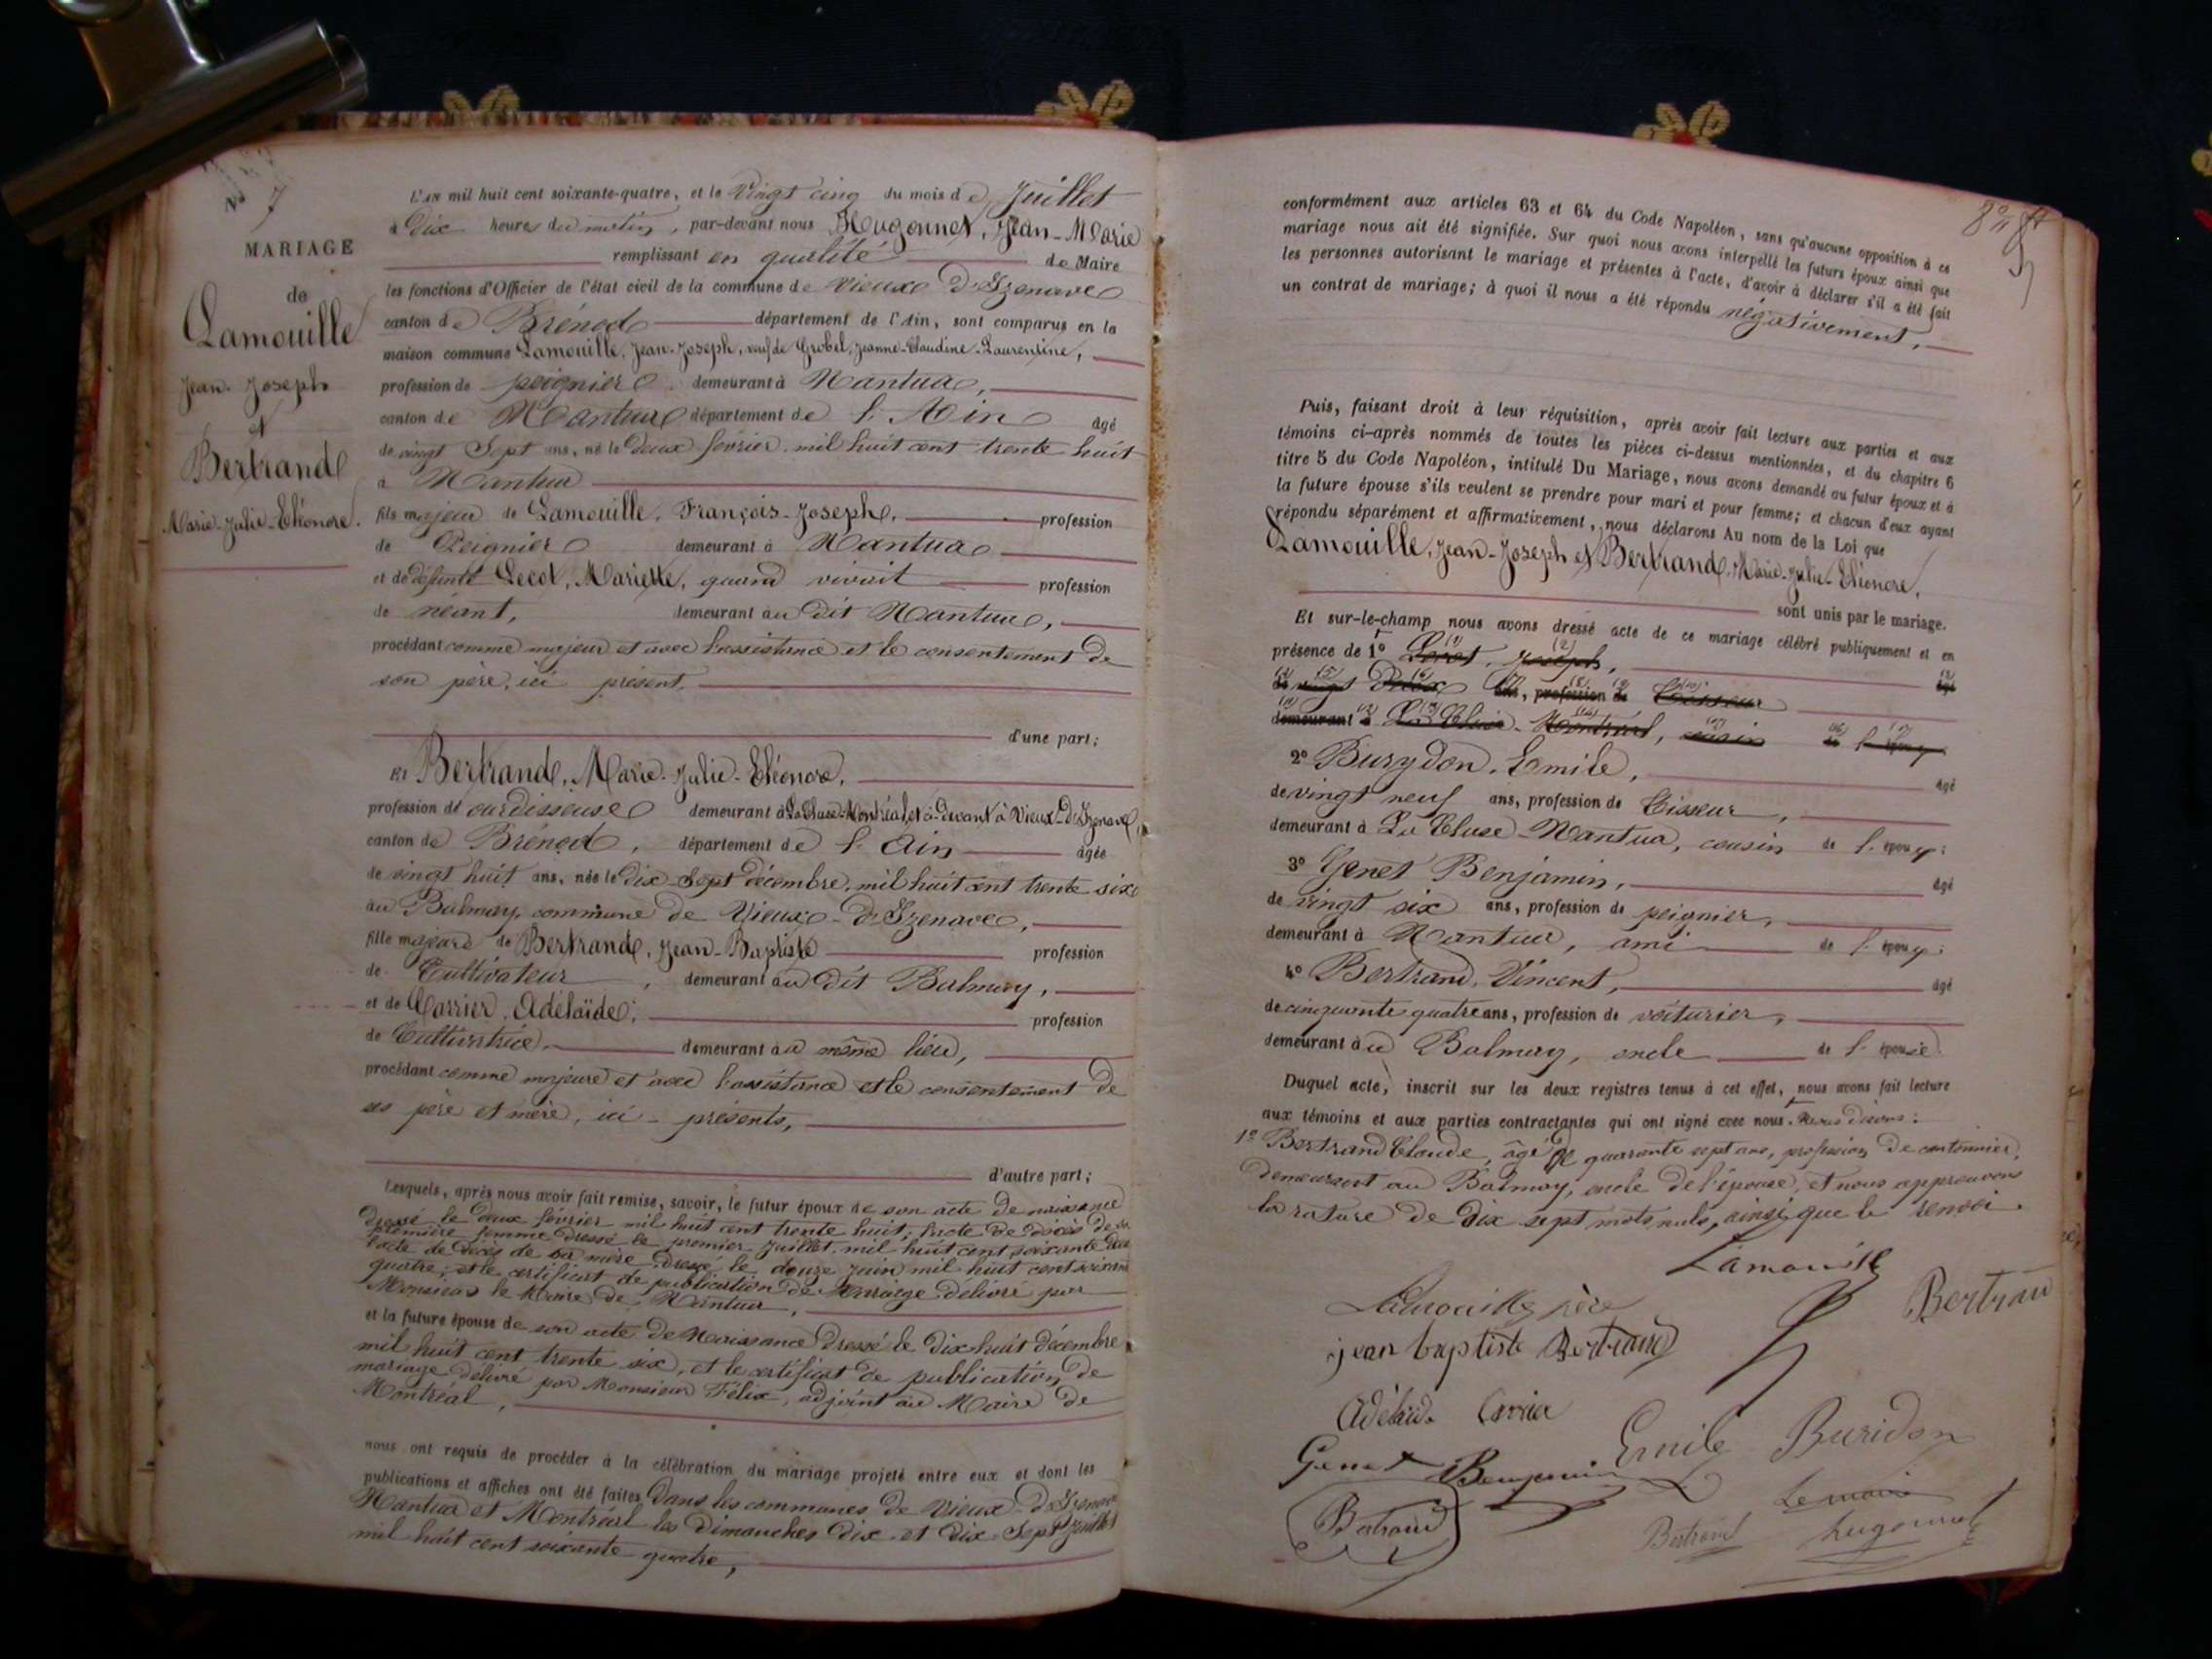 N° 7
MARIAGE
de
Lamouille
Jean-Joseph
et
Bertrand
Marie-Julie-Eléonore.
L'AN mil huit cent soixante-quatre, et le vingt cinq du mois de Juillet
à Dix heures du matin, par-devant nous Hugonnet, Jean-Marie
remplissant en qualité de Maire
les fonctions d'Officier de l'état civil de la commune de Vieux-D'Izenave
canton de Brénod département de l'Ain, sont comparus en la
maison commune Lamouille, Jean-Joseph, veuf de Grobel, Jeanne-Claudine-Laurentine,
profession de peignier demeurant à Nantua,
canton de Nantua département de l'Ain âgé
de vingt Sept ans, né le deux février mil huit cent trente huit
à Nantua
fils majeur de Lamouille, François-Joseph, profession
de Peignier demeurant à Nantua
et de défunte Lecot, Mariette, quand vivait profession
de néant, demeurant au dit Nantua,
procédant comme majeur et avec l'assistance et le consentement de
son père, ici présent,
d'une part;
Et Bertrand, Marie-Julie-Eléonore,
profession de ourdisseuse demeurant à La Cluse-Montréal, et ci-devant à Vieux-D'Izenave,
canton de Brénod, département de l'Ain âgée
de vingt huit ans, née le Dix-Sept décembre, mil huit cent trente six
au Balmay, commune de Vieux-D'Izenave,
fille majeure de Bertrand, Jean-Baptiste profession
de Cultivateur, demeurant au dit Balmay,
et de Carrier, Adélaïde, profession
de Cultivatrice, demeurant au même lieu,
procédant comme majeure et avec l'assistance et le consentement de
ses père et mère, ici-présents,
d'autre part;
Lesquels, après nous avoir fait remise, savoir, le futur époux de son acte de naissance
dressé le deux février mil huit cent trente huit; l'acte de décès de sa
première femme dressé le premier Juillet, mil huit cent soixante
l'acte de décès de sa mère dressé le douze Juin mil huit cent soixante
quatre; et le certificat de publication de Mariage délivré par
Monsieur le Maire de Nantua,
et la future épouse de son acte de Naissance dressé le dix-huit décembre
mil huit cent trente six, et le certificat de publication de
mariage délivré par Monsieur Félix, adjoint au Maire de
Montréal,
nous ont requis de procéder à la célébration du mariage projeté entre eux et dont les
publications et affiches ont été faites dans les communes de Vieux-D'Izenave
Nantua et Montréal les dimanches dix et dix-Sept Juillet
mil huit cent soixante quatre,
conformément aux articles 63 et 64 du Code Napoléon, sans qu'aucune opposition à ce
mariage nous ait été signifiée. Sur quoi nous avons interpellé les futurs époux ainsi que
les personnes autorisant le mariage et présentes à l'acte, d'avoir à déclarer s'il a été fait
un contrat de mariage; à quoi il nous a été répondu négativement,
Puis, faisant droit à leur réquisition, après avoir fait lecture aux parties et aux
témoins ci-après nommés de toutes les pièces ci-dessus mentionnées, et du chapitre 6
titre 5 du Code Napoléon, intitulé Du Mariage, nous avons demandé au futur époux et à
la future épouse s'ils veulent se prendre pour mari et pour femme; et chacun d'eux ayant
répondu séparément et affirmativement, nous déclarons Au nom de la Loi que
Lamouille, Jean-Joseph et Bertrand, Marie-Julie-Eléonore,
sont unis par le mariage.
Et sur-le-champ nous avons dressé acte de ce mariage célébré publiquement et en
présence de 1° Joseph, âgé
de vingt Deux ans, profession de Tisseur
demeurant à La Cluse-Montréal, cousin de l'époux
2° Burydon, Emile, âgé
de vingt neuf ans, profession de Tisseur,
demeurant à La Cluse-Nantua, cousin de l'époux;
3° Genet Benjamin, âgé
de vingt six ans, profession de peignier,
demeurant à Nantua, ami de l'époux;
4° Bertrand, Vincent, âgé
de cinquante quatre ans, profession de voiturier,
demeurant au Balmay, oncle de l'épouse.
Duquel acte, inscrit sur les deux registres tenus à cet effet, nous avons fait lecture
aux témoins et aux parties contractantes qui ont signé avec nous. Nous disons:
1° Bertrand Claude, âgé de quarante sept ans, profession de cantonnier,
demeurant au Balmay, oncle de l'épouse, et nous approuvons
la rature de dix sept mots nuls, ainsi que le renvoi.
Lamouille
Lamouille père
Bertrand
jean baptiste Bertrand
Adélaïde Carrier
Emile Buridon
Genet Benjamin
Le maire
Bertrand
Bertrand
hugonnet